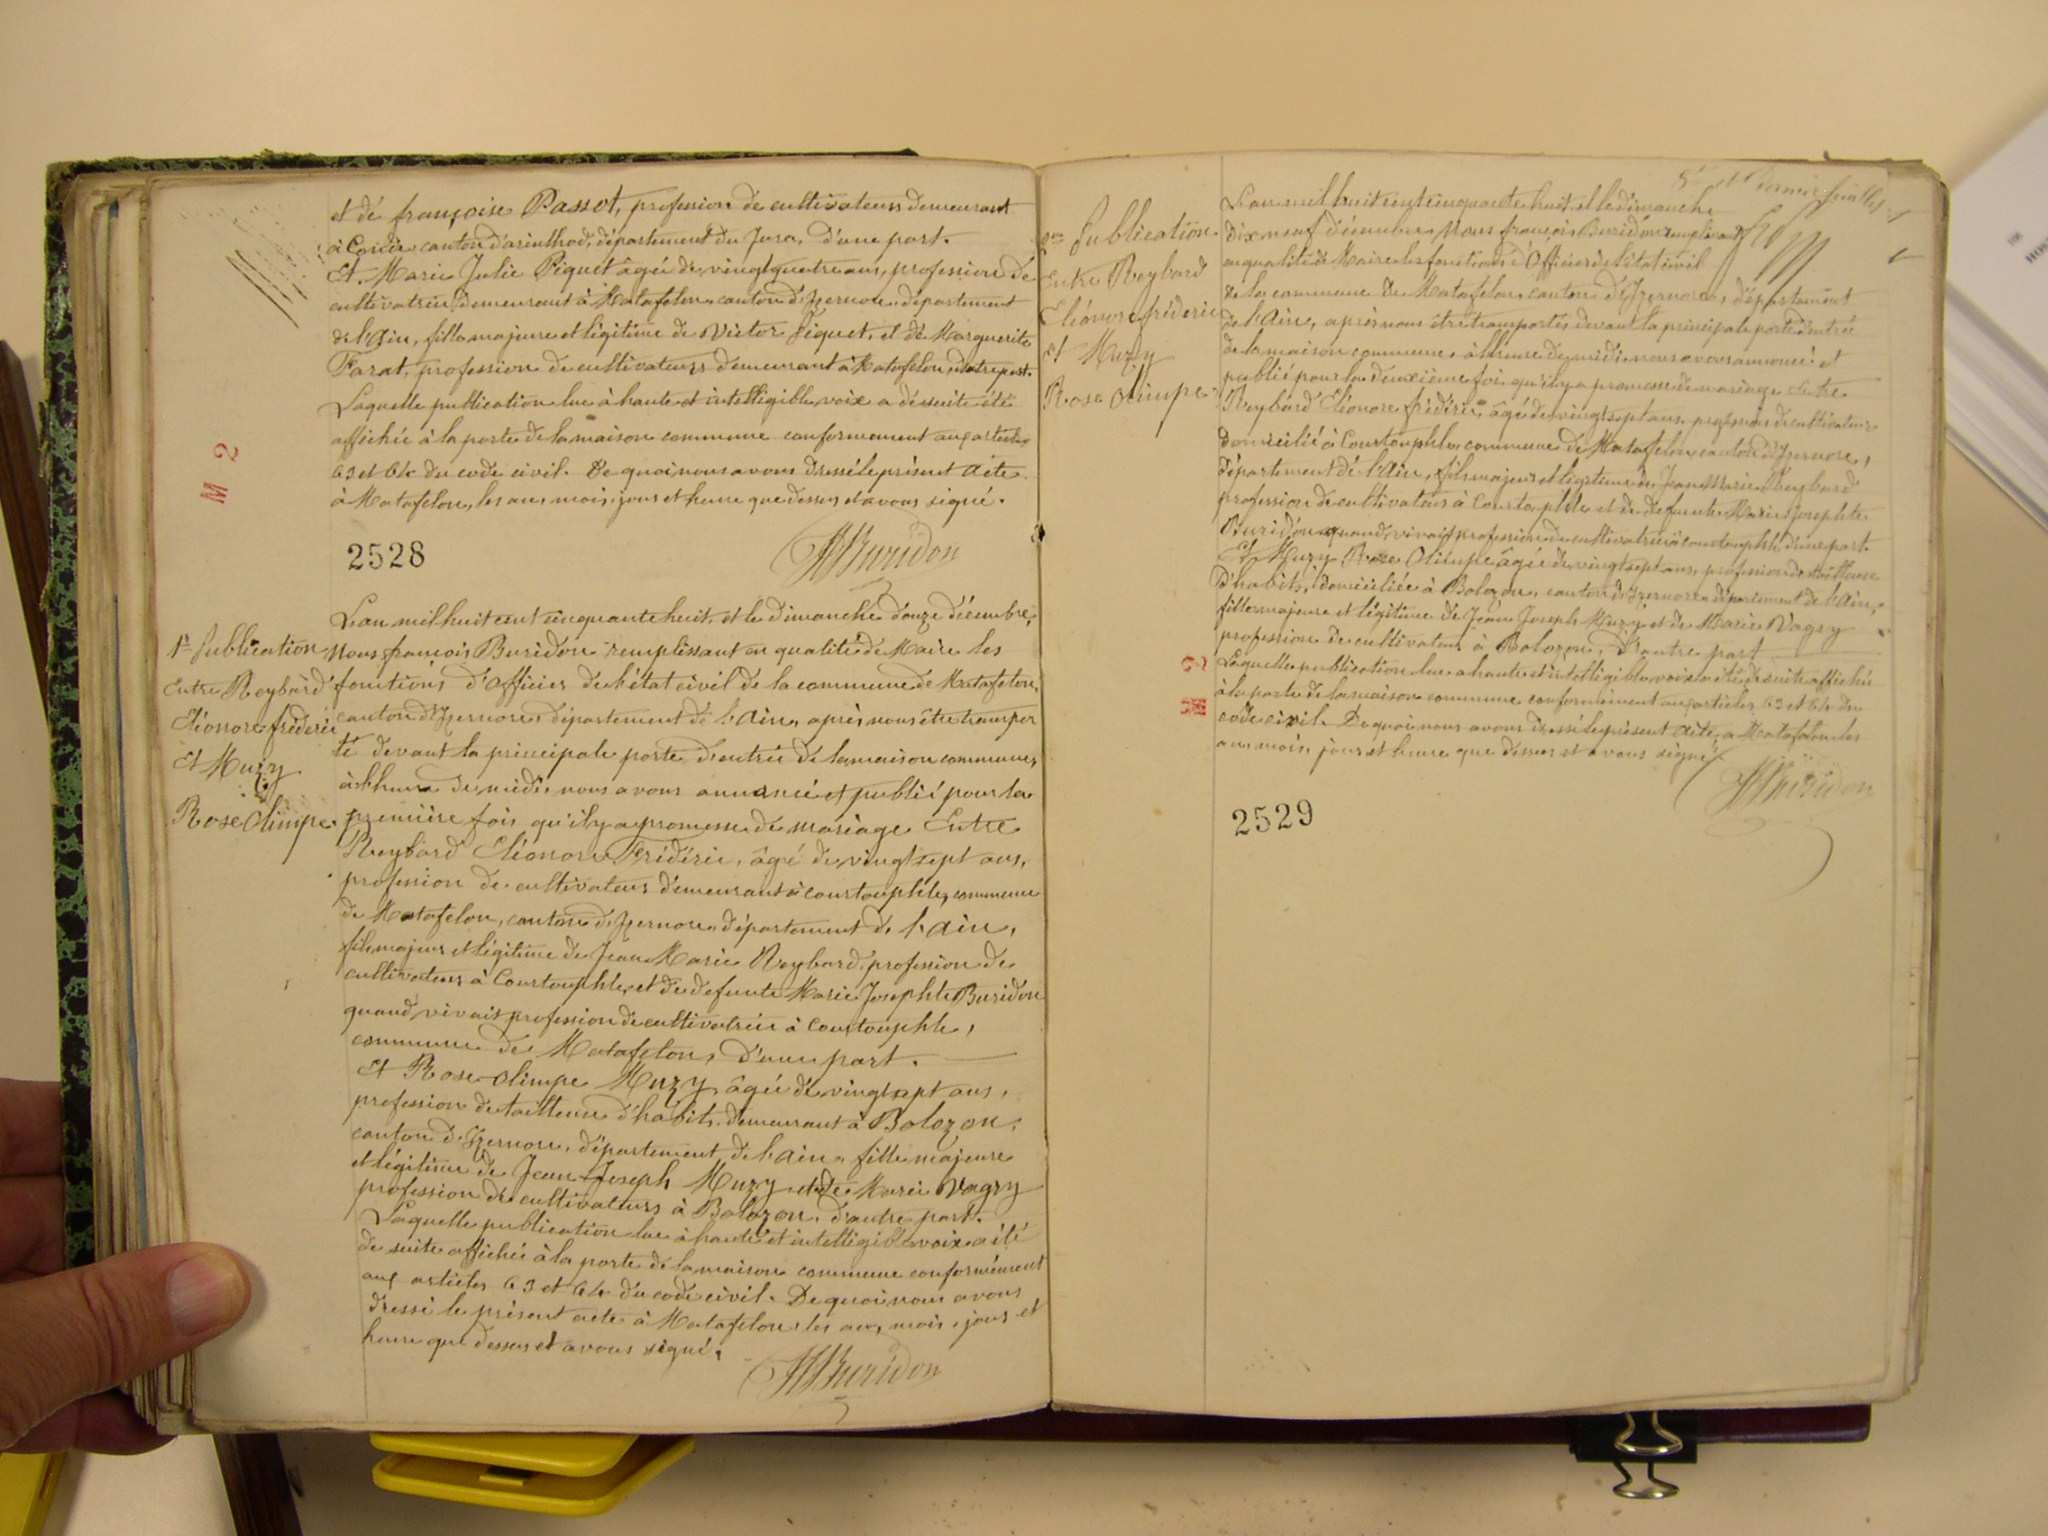 et de françoise Passot, profession de cultivateurs demeurant
à Condes canton d'arinthod, département du Jura, d'une part.
Et Marie Julie Piquet âgée de vingt quatre ans, profession de
cultivatrice demeurant à Matafelon canton d'Izernore département
de l'Ain, fille majeure et légitime de Victor Piquet, et de Marguerite
Farat, profession de cultivateurs demeurant à Matafelon, d'autre part.
Laquelle publication lue à haute et intelligible voix a de suite été
affichée à la porte de la maison commune conformement aux articles
63 et 64 du code civil. De quoi nous avons dressé le présent acte
à Matafelon, les an, mois, jour et heure que dessus et avons signé.
M 2
Buridon
2528
1re Publication
Entre Reybard
Eléonore fréderic
Et Muzy
Rose Olimpe
L'an mil huit cent cinquante huit, et le dimanche douze décembre,
Nous françois Buridon remplissant en qualité de Maire les
fonctions d'officier de l'état civil de la commune de Matafelon,
canton d'Izernore, département de l'Ain, après nous être transpor
té devant la principale porte d'entrée de la maison commune,
à l'heure de midi, nous avons annoncé et publié pour la
première fois qu'il y a promesse de mariage Entre
Reybard Eléonore Frédéric, âgé de vingt sept ans,
profession de cultivateur demeurant à courtouphle, commune
de Matafelon, canton d'Izernore département de l'ain,
fils majeur et légitime de Jean Marie Reybard, profession de
cultivateur à Courtouphle, et de defunte Marie Josephte Buridon
quand vivait profession de cultivatrice à Courtouphle,
commune de Matafelon, d'une part.
Et Rose Olimpe Muzy, âgée de vingt sept ans,
profession de tailleuse d'habits, demeurant à Bolozon,
canton d'Izernore, département de l'ain, fille majeure
et légitime de Jean Joseph Muzy et de Marie Vagry
profession de cultivateurs à Bolozon, d'autre part.
Laquelle publication lue à haute et intelligible voix a été
de suite affichée à la porte de la maison commune conformément
aux articles 63 et 64 du code civil. De quoi nous avons
dressé le présent acte à Matafelon, les an, mois, jour et
heure que dessus et avons signé.
Buridon
5e et dernier feuillet
2me Publication
Entre Reybard
Eléonore fréderic
et Muzy
Rose Olimpe
L'an mil huit cent cinquante huit, et le dimanche
dix neuf décembre, Nous françois Buridon remplissant
en qualité de Maire les fonctions d'Officier de l'état civil
de la commune de Matafelon, canton d'Izernore, département
de l'Ain, après nous être transporté devant la principale porte d'entrée
de la maison commune, à l'heure de midi, nous avons annoncé et
publié pour la deuxième fois qu'il y a promesse de mariage Entre
Reybard Eléonore frédéric âgé de vingt sept ans, profession de cultivateur
domicilié à Courtouphle, commune de Matafelon, canton d'Izernore,
département de l'Ain, fils majeur et légitime de Jean Marie Reybard
profession de cultivateur à Courtouphle et de defunte Marie Josephte
Buridon quand vivait profession de cultivatrice à courtouphle, d'une part.
Et Muzy Rose Olimpe âgée de vingt sept ans, profession de tailleuse
d'habits, domiciliée à Bolozon, canton d'Izernore département de l'Ain,
fille majeure et légitime de Jean Joseph Muzy et de Marie Vagry
profession de cultivateurs à Bolozon, d'autre part
Laquelle publication lue à haute et intelligible voix a été de suite affichée
à la porte de la maison commune conformément aux articles 63 et 64 du
code civil. De quoi nous avons dressé le présent acte, à Matafelon les
an, mois, jour et heure que dessus et avons signé
M 2
Buridon
2529